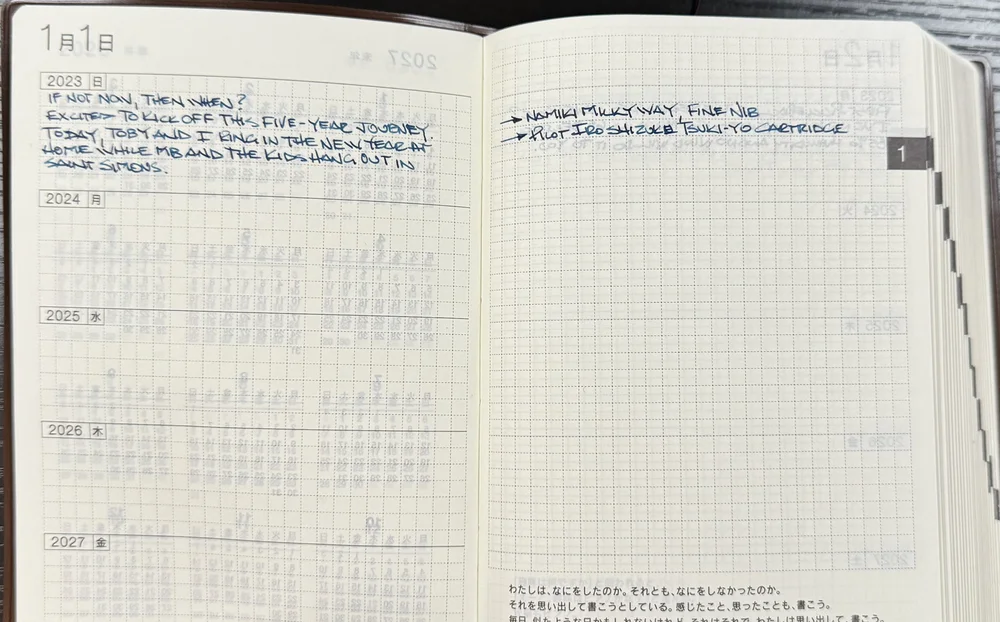 1月1日
2023 日
IF NOT NOW, THEN WHEN?
EXCITED TO KICK OFF THIS FIVE-YEAR JOURNEY.
TODAY, TOBY AND I RING IN THE NEW YEAR AT
HOME WHILE MB AND THE KIDS HANG OUT IN
SAINT SIMONS.
2024 月
2025 水
2026 木
2027 金
→ NAMIKI MILKY WAY, FINE NIB
→ PILOT IROSHIZUKU TSUKI-YO CARTRIDGE
1
わたしは、なにをしたのか。それとも、なにをしなかったのか。
それを思い出して書こうとしている。感じたこと、思ったことも、書こう。
毎日、似たような日かもしれないけれど、それはそれで、わたしは思い出して、書こう。